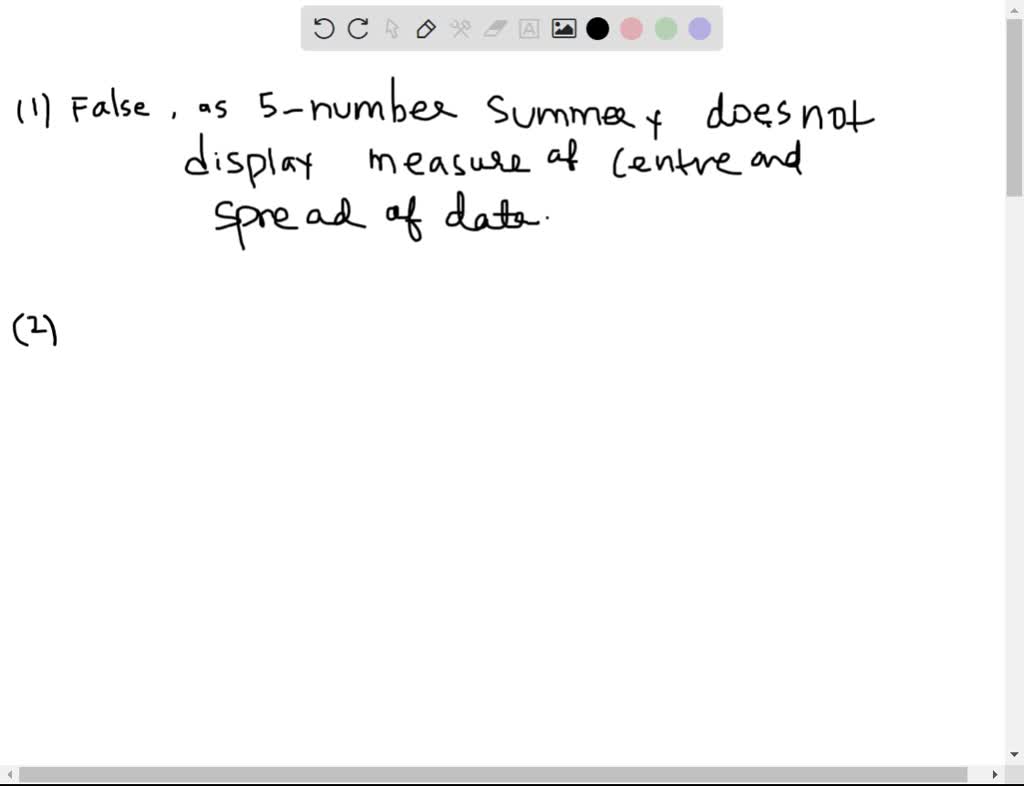 (1) False, as 5-number Summery does not
display measure of Centre and
spread of data.
(2)